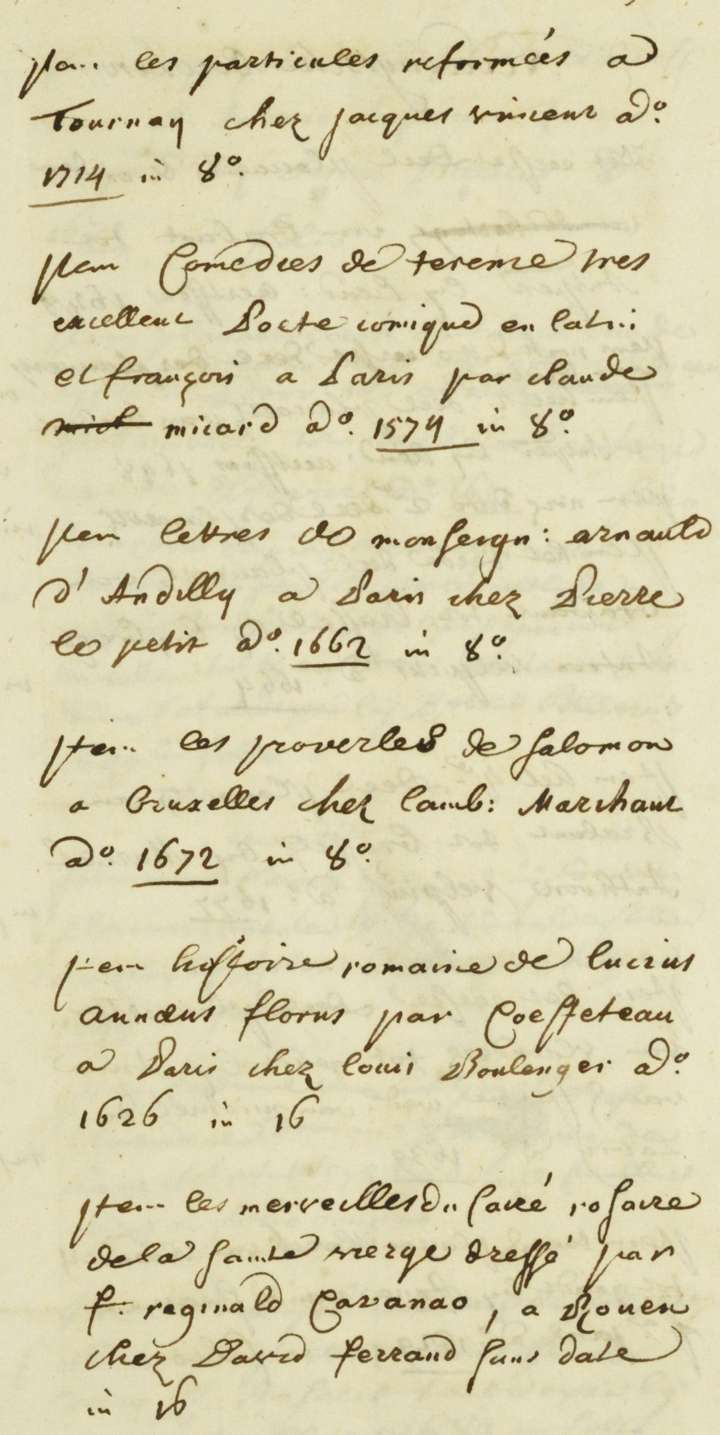 Item les particules reformées a
Tournay chez jacques vincent ado.
1714 in 8o.
Item Comedies de terense tres
excellent Poete comique en latin
et françois a Paris par claude
mich micard ado. 1574 in 8o.
Item lettres de monseign: arnauld
d'Andilly a Paris chez Pierre
le petit ado. 1662 in 8o.
Item les proverbes de salomon
a bruxelles chez lamb: Marchant
ado. 1672 in 8o.
Item histoire romaine de lucius
annæus florus par Coeffeteau
a Paris chez louis Boulenger ado.
1626 in 16
Item les merveilles du sacré rosaire
de la sainte vierge dressé par
f. reginald Cavanao, a Rouen
chez David ferrand sans date
in 16